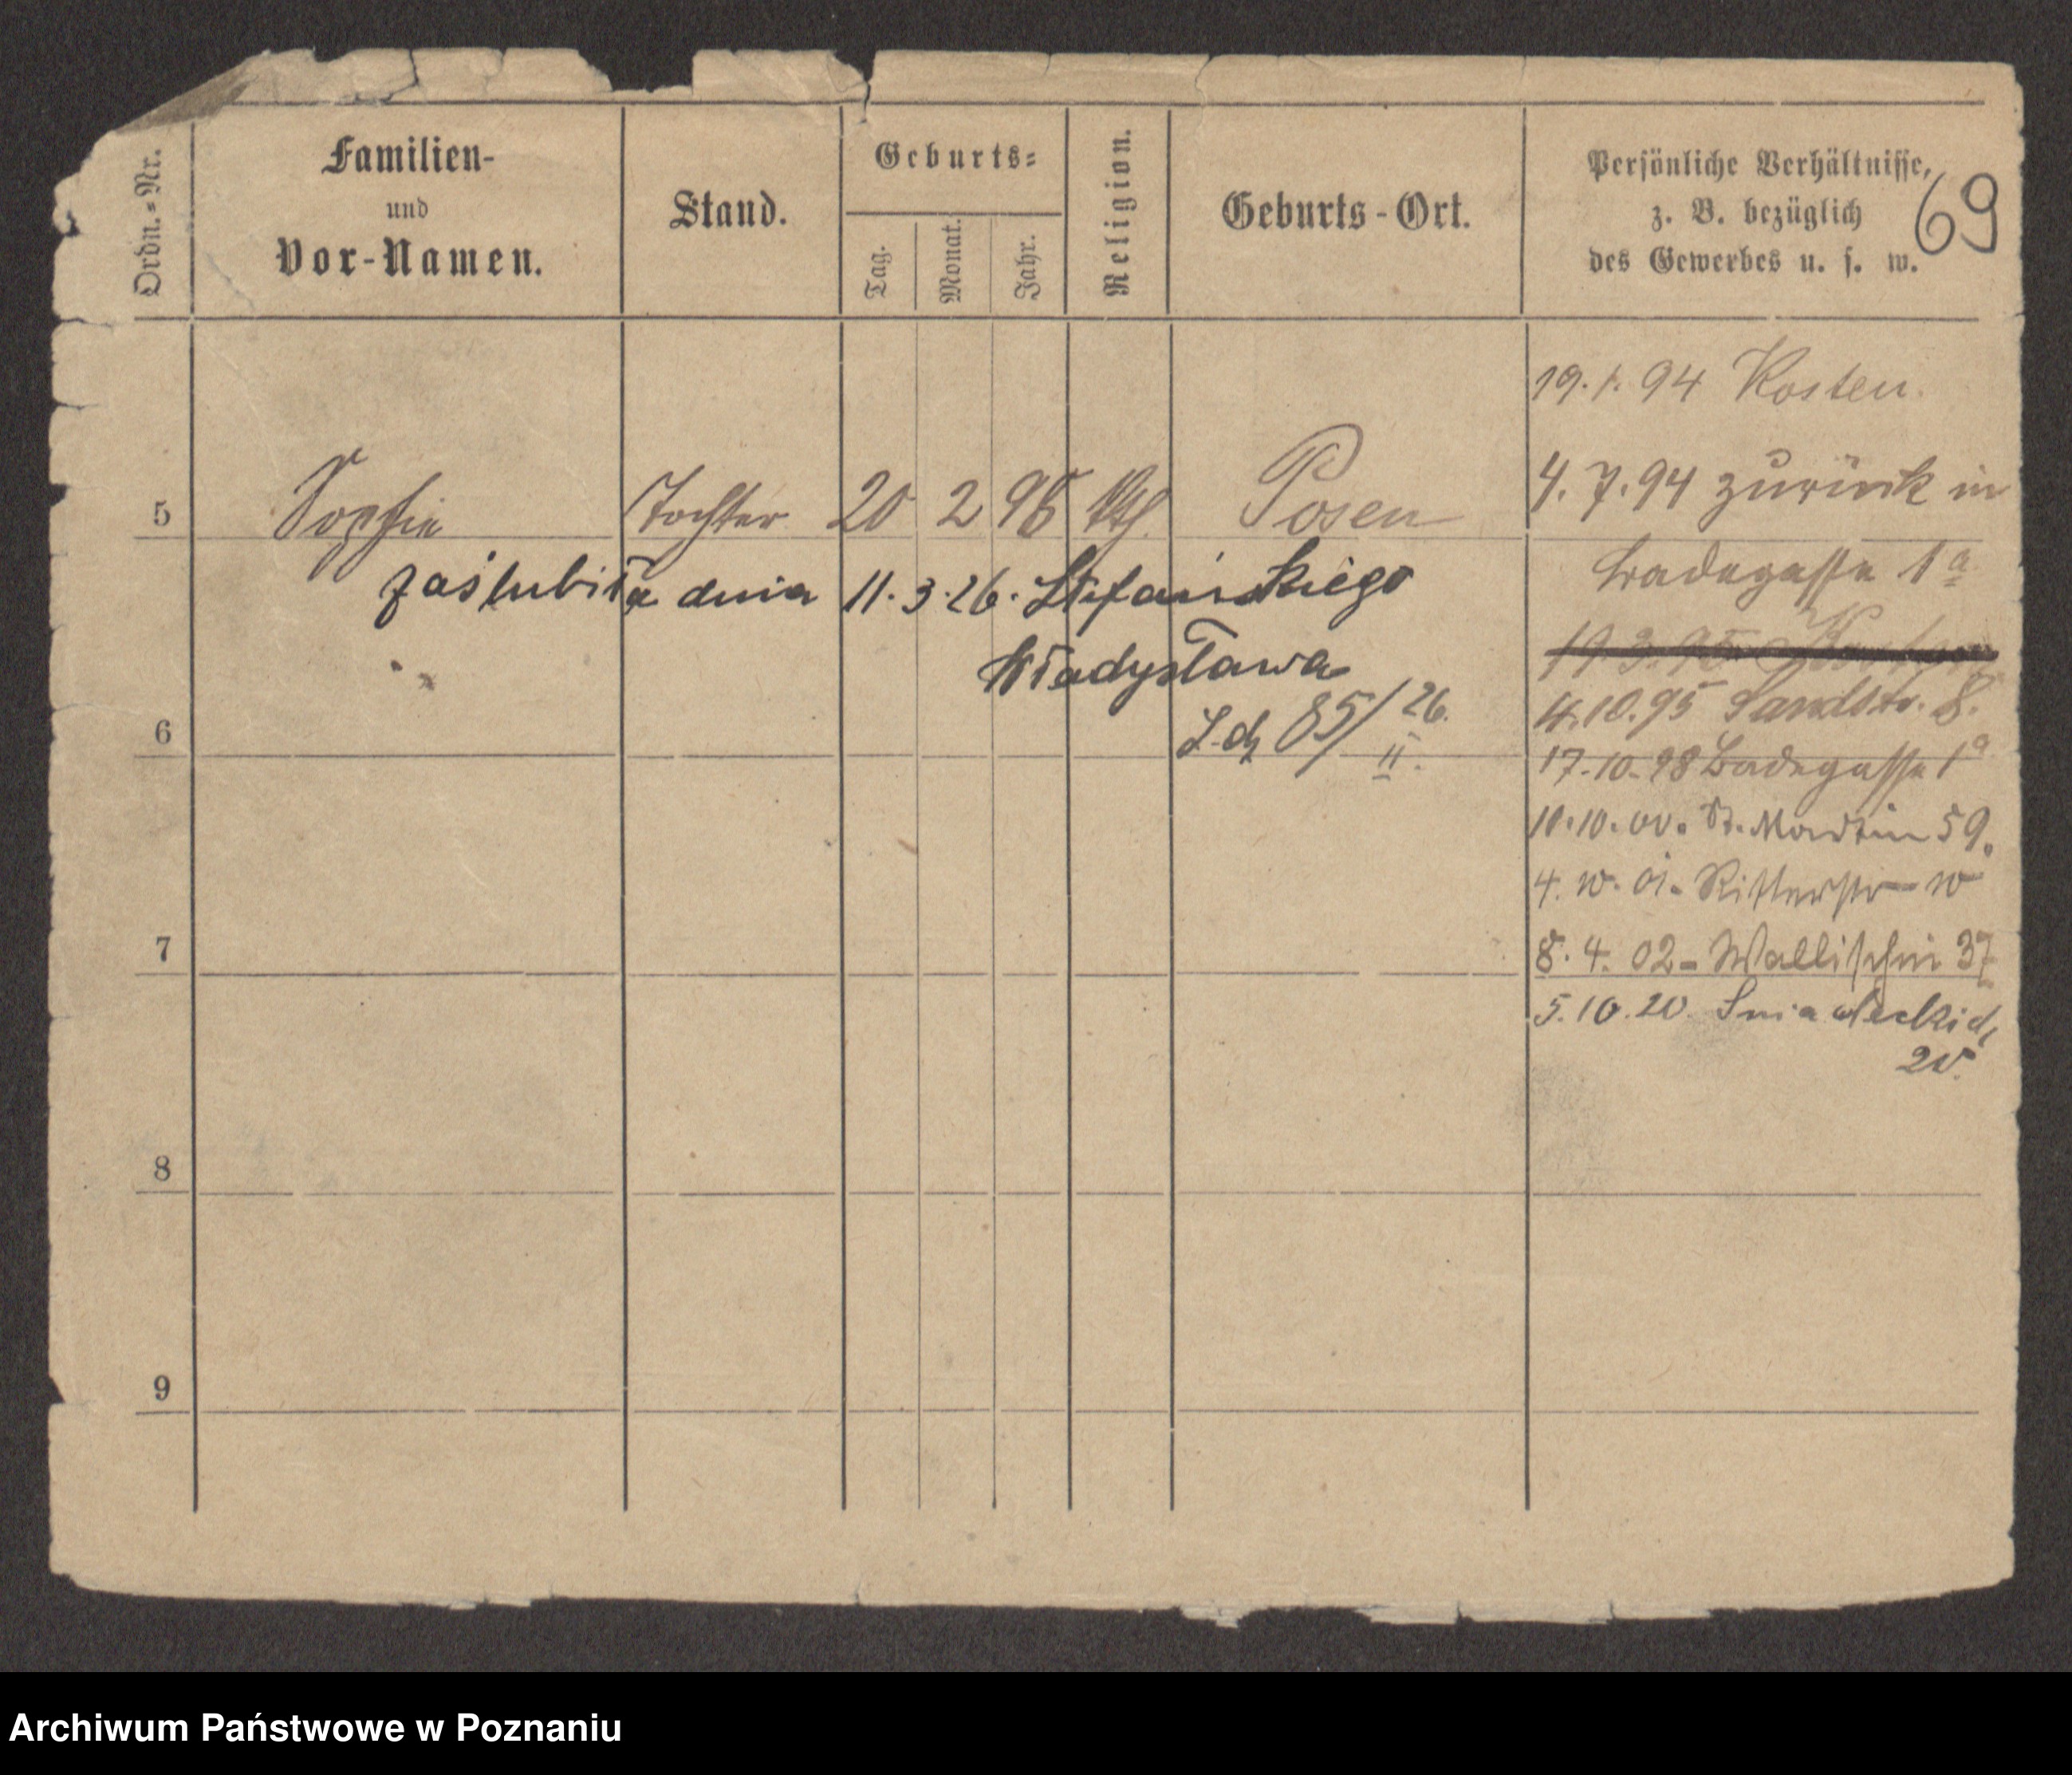 Ordn.-Nr.
Familien-
und
Vor-Namen.
Stand.
Geburts-
Tag.
Monat.
Jahr.
Religion.
Geburts-Ort.
Persönliche Verhältnisse,
z. B. bezüglich
des Gewerbes u. s. w.
69
19.1.94 Kosten.
4.7.94 zurück in
5 Sophie Tochter 20 2 96 kth. Posen
Badegasse 1a
zaślubiła dnia 11.3.26. Stefańskiego
Władysława
4.10.95 Sandstr. 8.
6
L.dz 85/26.
II.
17.10.98 Badegasse 1a
10.10.00. St. Martin 59.
4.10.01. Ritterstr 10
7
8.4.02 - Wallischei 37
5.10.20. Sniadeckich
20.
8
9
Archiwum Państwowe w Poznaniu